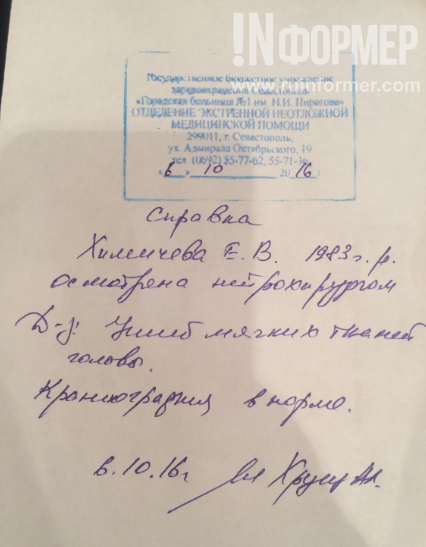 !NФОРМЕР
www.ruinformer.com
Государственное бюджетное учреждение
здравоохранения Севастополя
«Городская больница №1 им. Н.И. Пирогова»
ОТДЕЛЕНИЕ ЭКСТРЕННОЙ НЕОТЛОЖНОЙ
МЕДИЦИНСКОЙ ПОМОЩИ
299011, г. Севастополь,
ул. Адмирала Октябрьского, 19
тел. (0692) 55-77-62, 55-71-36
«6» 10 2016 г.
Справка
Химичева Е. В. 1983 г. р.
осмотрена нейрохирургом
D-з: Ушиб мягких тканей
головы.
Краниография в норме.
6.10.16 г